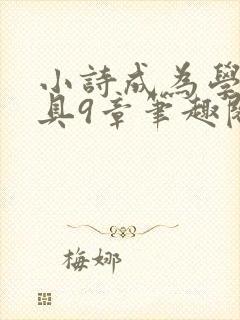 小詩成為學
具9章筆趣閱
梅娜